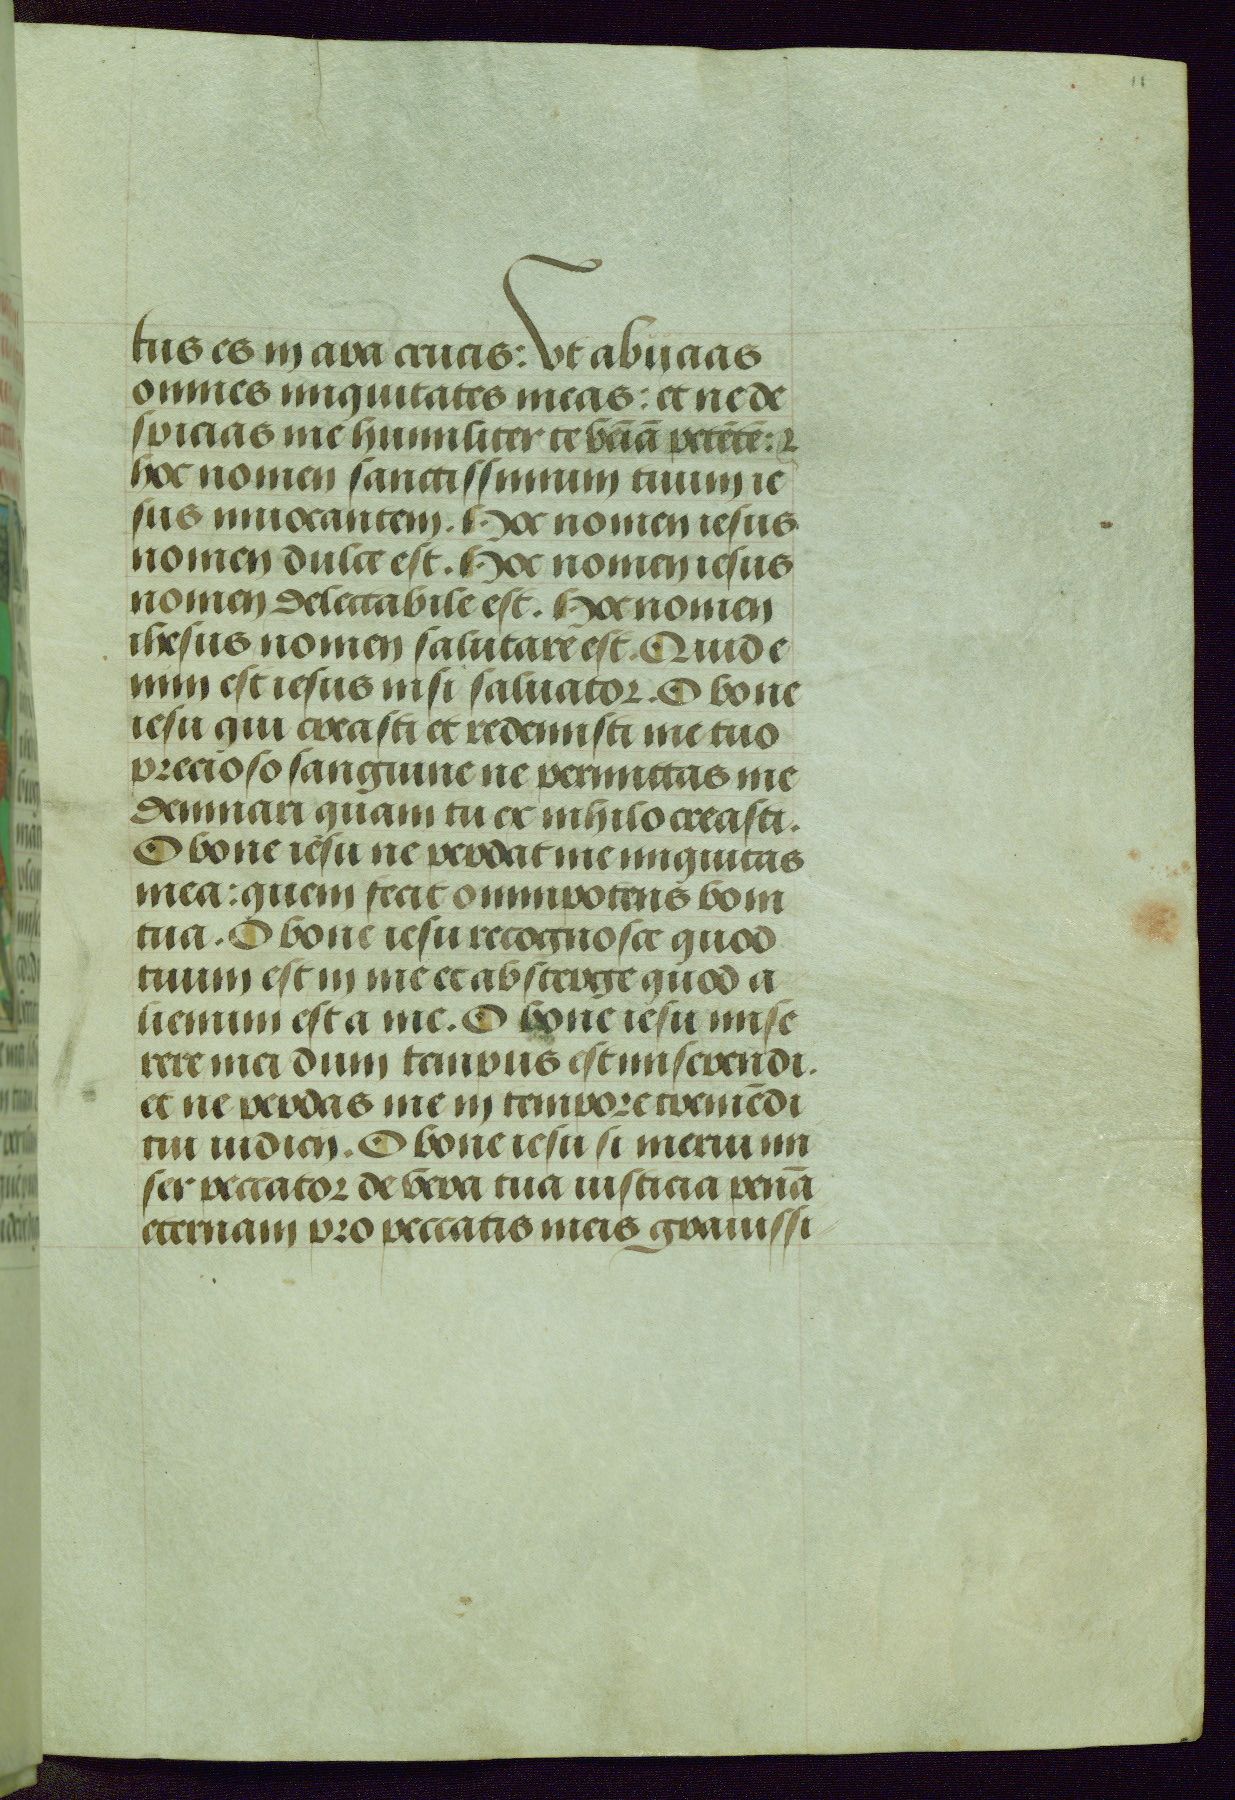 11
tus es in ara crucis: vt abijcias
omnes iniquitates meas: et ne de
spicias me humiliter te petētē: ⁊
hoc nomen sanctissimum tuum ie
sus inuocantem. Hoc nomen iesus
nomen dulce est. Hoc nomen iesus
nomen delectabile est. Hoc nomen
ihesus nomen salutare est. Quid e
nim est iesus nisi saluator. O bone
iesu qui creasti et redemisti me tuo
precioso sanguine ne permittas me
demnari quam tu ex nihilo creasti.
O bone iesu ne perdat me iniquitas
mea: quem fecit omnipotens boni
tua. O bone iesu recognosce quod
tuum est in me et absterge quod a
lienum est a me. O bone iesu mise
rere mei dum tempus est miserendi.
et ne perdas me in tempore tremēdi
tui iudicij. O bone iesu si merui mi
ser peccator de vera tua iusticia penā
eternam pro peccatis meis grauissi